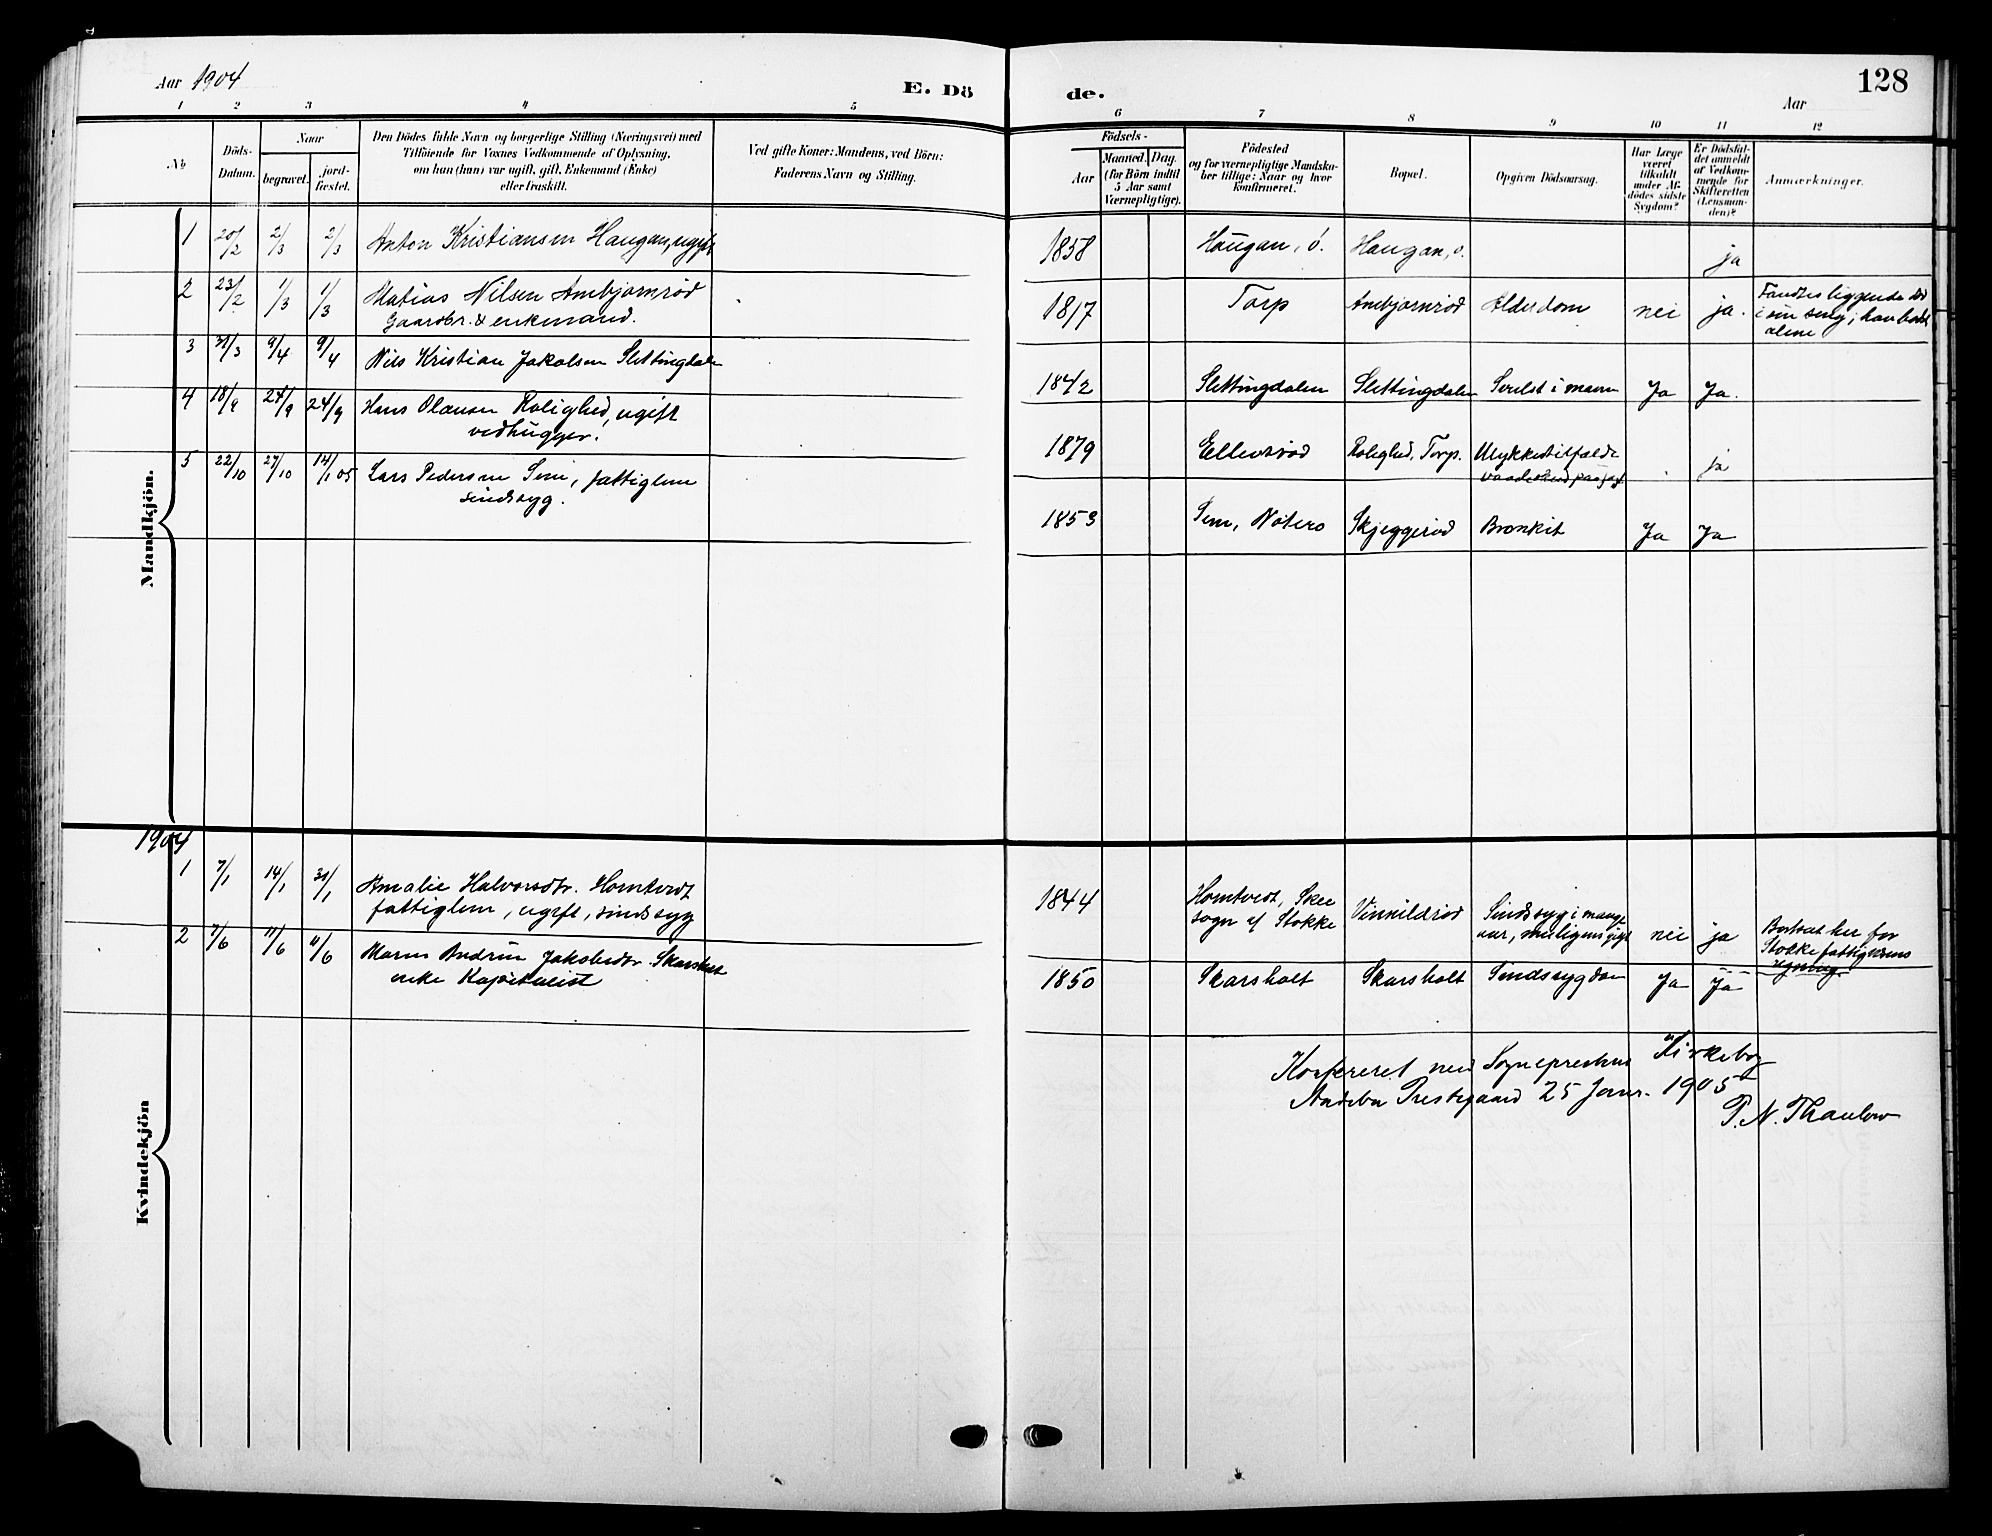 Aar 1904
E. Dö
de.
Aar
128
1 2 3 4 5
6 7 8 9 10 11 12
No
Döds-Datum.
Naar
begravet.
jord-fæstet.
Den Dödes fulde Navn og borgerlige Stilling (Næringsvei) med
Tilföiende for Voxnes Vedkommende af Oplysning,
om han (hun) var ugift, gift, Enkemand (Enke)
eller fraskilt.
Ved gifte Koner: Mandens, ved Börn:
Faderens Navn og Stilling.
Födsels-
Aar
Maaned. Dag.
(for Börn indtil
5 Aar samt
Værnepligtige).
Födested
og for værnepligtige Mandska-
ber tillige: Naar og hvor
konfirmeret.
Bopæl.
Opgiven Dödsaarsag.
Har Læge
været
tilkaldt
under Af-
dödes sidste
Sygdom?
Er Dödsfal-
det anmeldt
af Vedkom-
mende for
Skifteretten
(Lensman-
den)?
Anmærkninger.
Mandkjön.
1 20/2 2/3 2/3 Anton Kristiansen Haugan, ugift
1858 Haugan, ö. Haugan, ö. ja
2 23/2 1/3 1/3 Matias Nilsen Ambjørnrød
Gaardbr. & enkemand.
1817 Torp Ambjørnrød Alderdom nei ja.
Fandtes liggende død
i sin seng; han bodde
alene
3 31/3 9/4 9/4 Nils Kristian Jakobsen Slettingdalen
1842 Slettingdalen Slettingdalen Svulst i maven Ja Ja.
4 18/9 24/9 24/9 Hans Olausen Rolighed, ugift
vedhugger.
1879 Ellevsrød Rolighed, Torp. Ulykkestilfælde
vaadeskud paa jagt
ja
5 22/10 27/10 14/1 05 Lars Pedersen Sem, fattiglem
sindssyg.
1853 Sem, Nøtterø Skjeggerød Bronkit Ja Ja
Kvindekjön
1904
1 7/1 14/1 31/1 Amalie Halvorsdtr. Homtvedt
fattiglem, ugift, sindssyg
1844 Homtvedt, Skee
sogn af Stokke
Vinnildrød Sindssyg i mange
aar, muligens gigt
nei ja
Bortsat her for
Stokke fattigvæsens
regning.
2 7/6 11/6 11/6 Maren Andrine Jakobsdtr. Skarsholt
enke
1850 Skarsholt Skarsholt Sindssygdom Ja Ja
Konfereret med Sogneprestens Kirkebog
Andebu Prestegaard 25 Janr. 1905
P. N. Thaulow